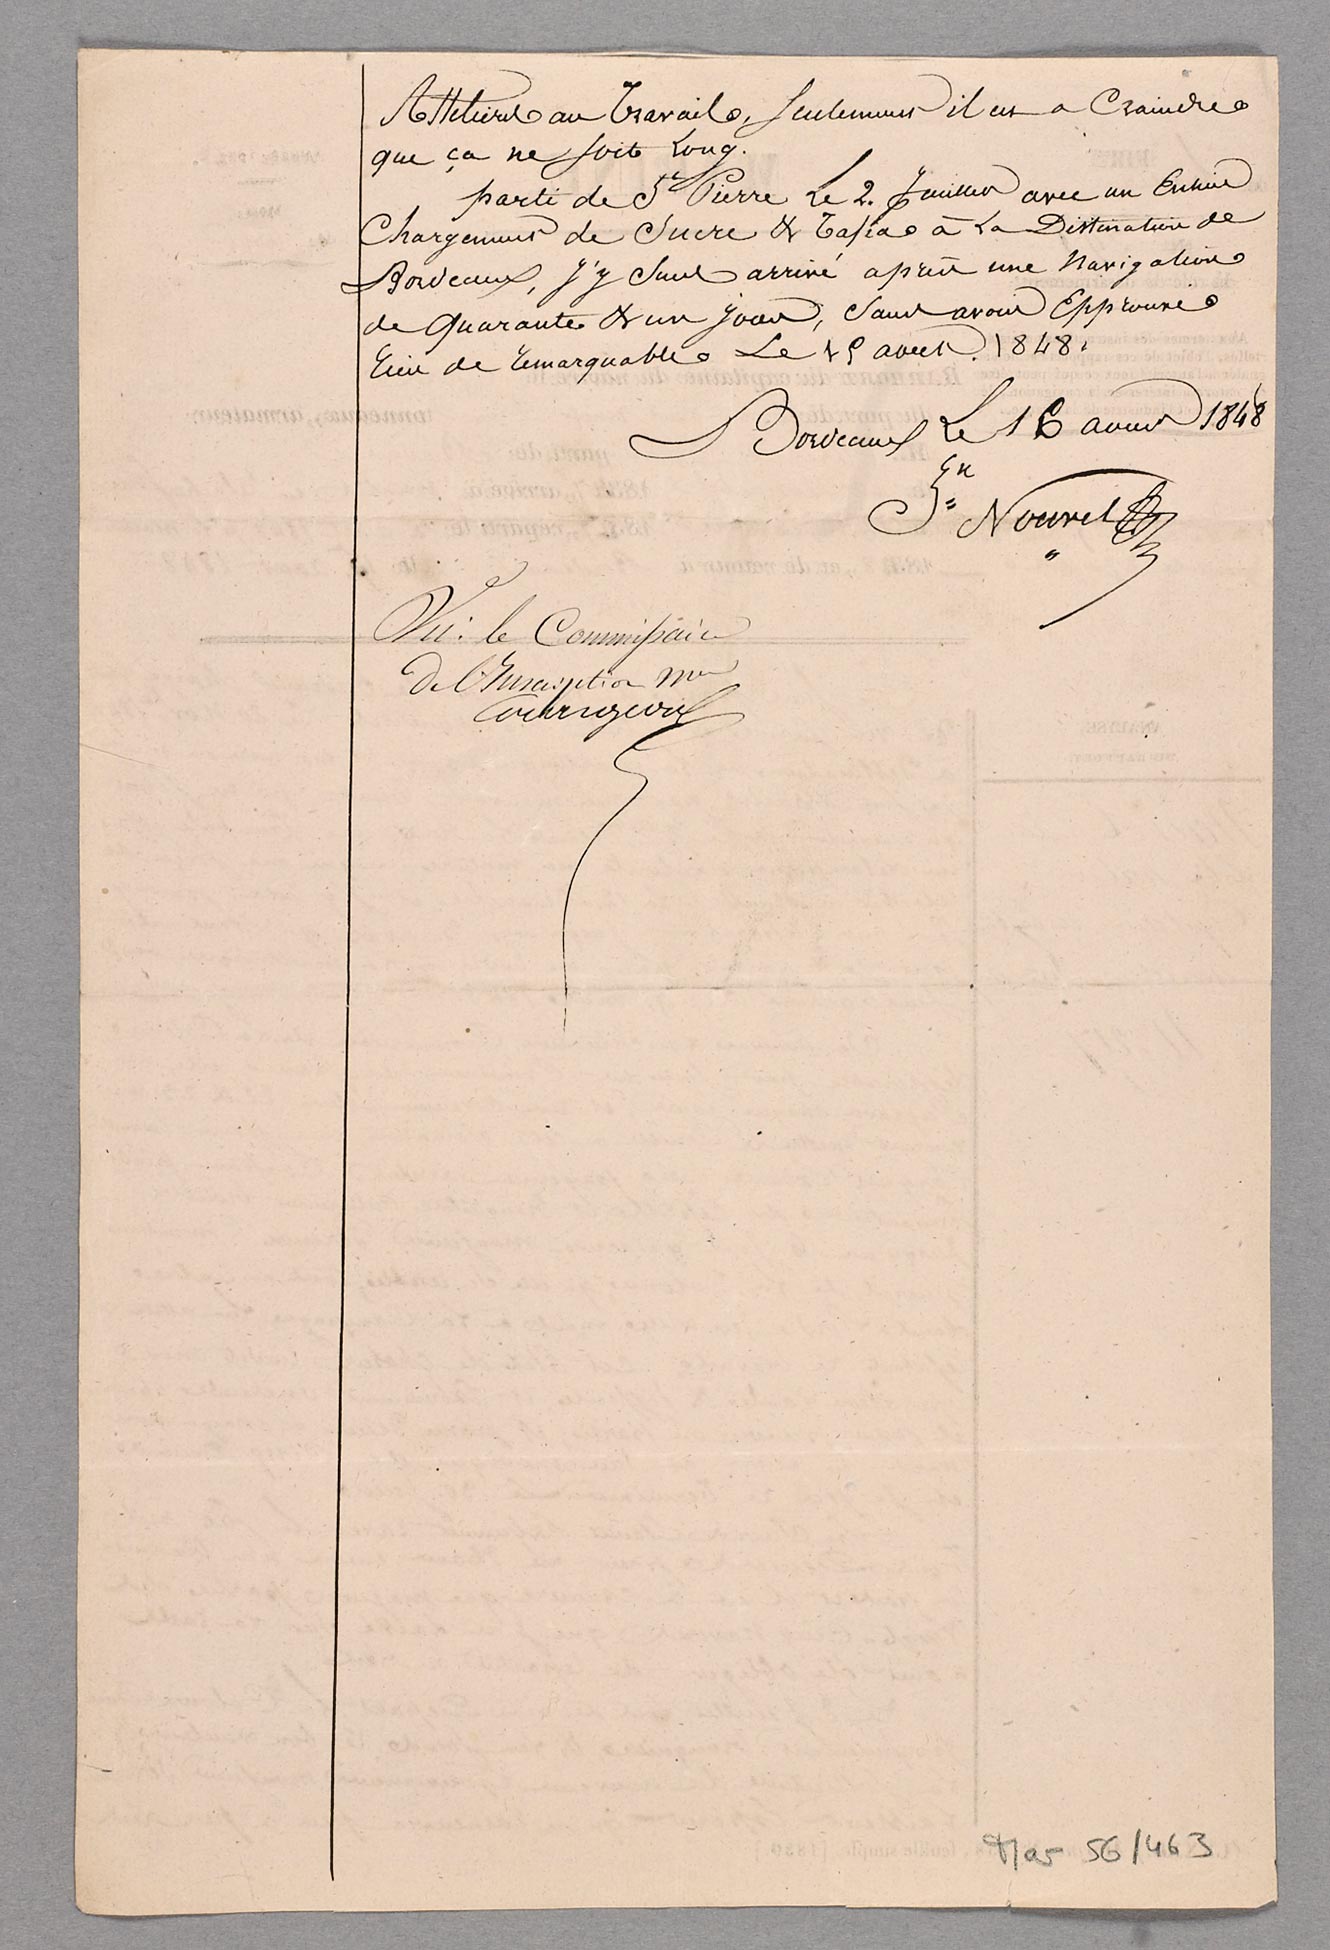 Atteliers au Travail, seulement il est a Craindre
que ça ne soit Long.
parti de St Pierre Le 2. Juillet avec un Entier
Chargement de Sucre & Tafia à La Destination de
Bordeaux, j'y suis arrivé après une Navigation
de Quarante & un jour, sans avoir Epprouvé
Rien de Remarquable Le 15 aout. 1848.
Bordeaux Le 16 aout 1848
Nouvel
Vu: le Commissaire
De l'Inscription mme
Mar 56/463